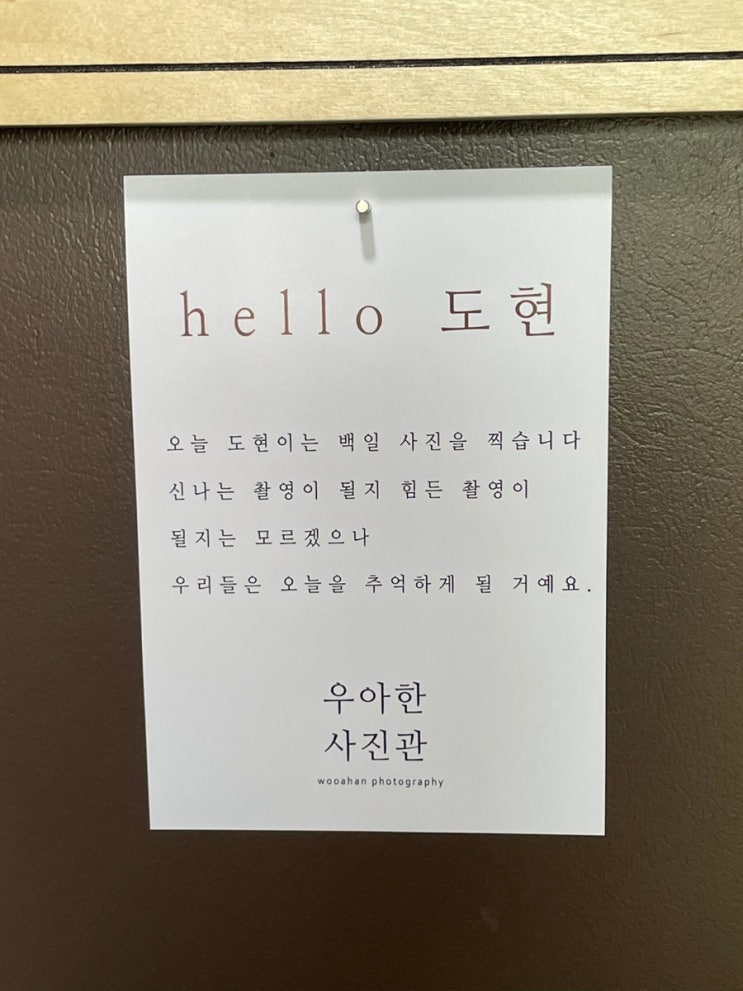 hello 도현
오늘 도현이는 백일 사진을 찍습니다
신나는 촬영이 될지 힘든 촬영이
될지는 모르겠으나
우리들은 오늘을 추억하게 될 거예요.
우아한
사진관
wooahan photography